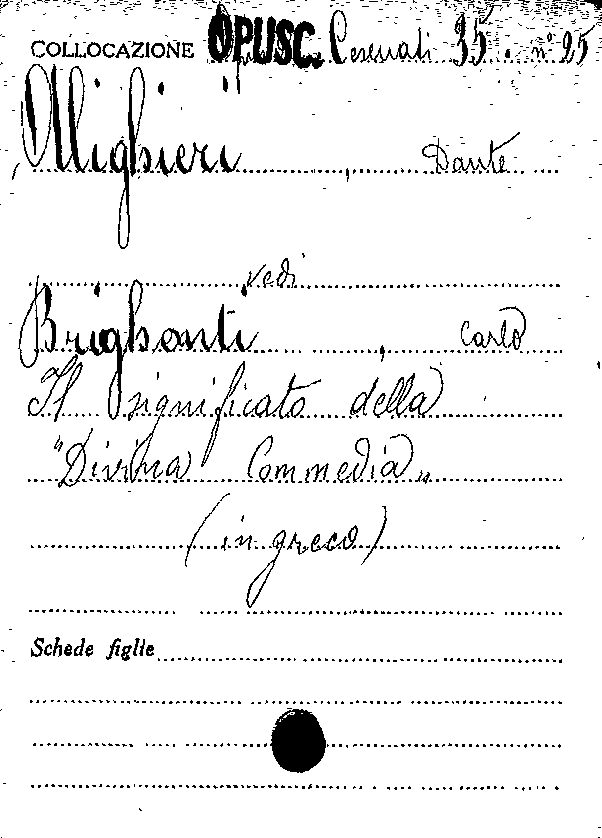 COLLOCAZIONE OPUSC. Cesenati 35. n° 25
Allighieri, Dante
vedi
Brighenti, Carlo
Il significato della
"Divina Commedia„
(in greco)
Schede figlie